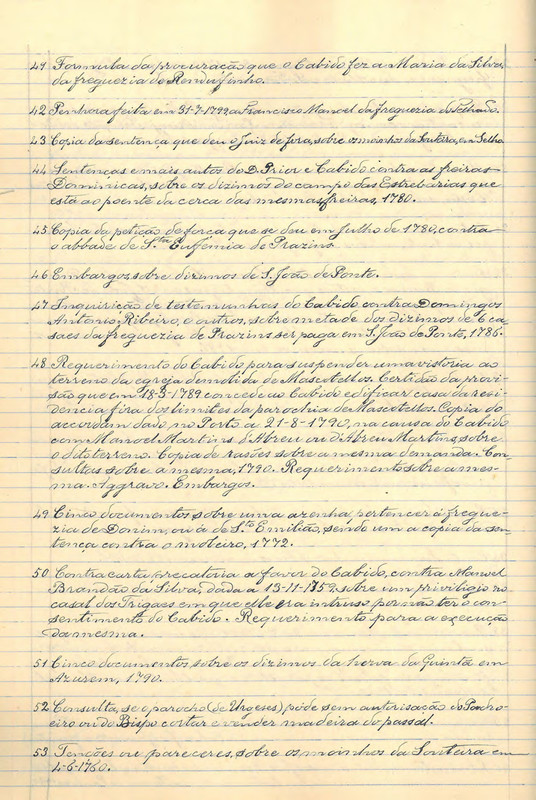 41 Formula da procuração que o Cabido fez a Maria da Silva,
da freguezia de Rendufinho.
42 Penhora feita em 31-7-1799 a Francisco Manoel da freguezia do Telhado.
43 Copia da sentença que deu o Juiz de fora, sobre os moinhos da Fonteira, em Selho.
44 Sentenças e mais autos do D. Prior e Cabido contra as freiras
Dominicas, sobre os dizimos do campo das Estrebarias que
está ao poente da cerca das mesmas freiras, 1780.
45 Copia da petição de força que se deu em Julho de 1780, contra
o abbade de S.ta Eufemia de Prazins
46 Embargos, sobre dizimos de S. João de Ponte.
47 Inquirição de testemunhas do Cabido contra Domingos
Antonio Ribeiro, e outros, sobre metade dos dizimos de 6 ca-
saes da freguezia de Prazins ser paga em S. João de Ponte, 1786.
48 Requerimento do Cabido para suspender uma vistoria ao
terreno da egreja demolida de Mascotellos. Certidão da provi-
são que em 18-3-1789 concede ao Cabido edificar casa da resi-
dencia fóra dos limites da parochia de Mascotellos. Copia do
accordam dado no Porto a 21-8-1790, na causa do Cabido
com Manoel Martins d'Abreu ou d'Abreu Martins, sobre
o dito terreno. Copia de rasões sobre a mesma demanda. Con-
sultas sobre a mesma, 1790. Requerimento sobre a mes-
ma. Aggravo. Embargos.
49 Cinco documentos sobre uma azenha, pertencer á fregue-
zia de Donim, ou á de S.to Emilião, sendo um a copia da sen-
tença contra o moleiro, 1772.
50 Contra carta precatoria a favor do Cabido, contra Manoel
Brandão da Silva, dada a 13-11-1759, sobre um priviligio no
casal dos Trigaes em que elle era intruso por não ter o con-
sentimento do Cabido. Requerimento para a execução
da mesma.
51 Cinco documentos, sobre os dizimos da herva da Quintã em
Azurem, 1790.
52 Consulta, se o parocho (de Urgeses) póde sem autorisação do Padro-
eiro ou do Bispo cortar e vender madeira do passal.
53 Tenções ou pareceres, sobre os moinhos da Fonteira em
4-6-1760.